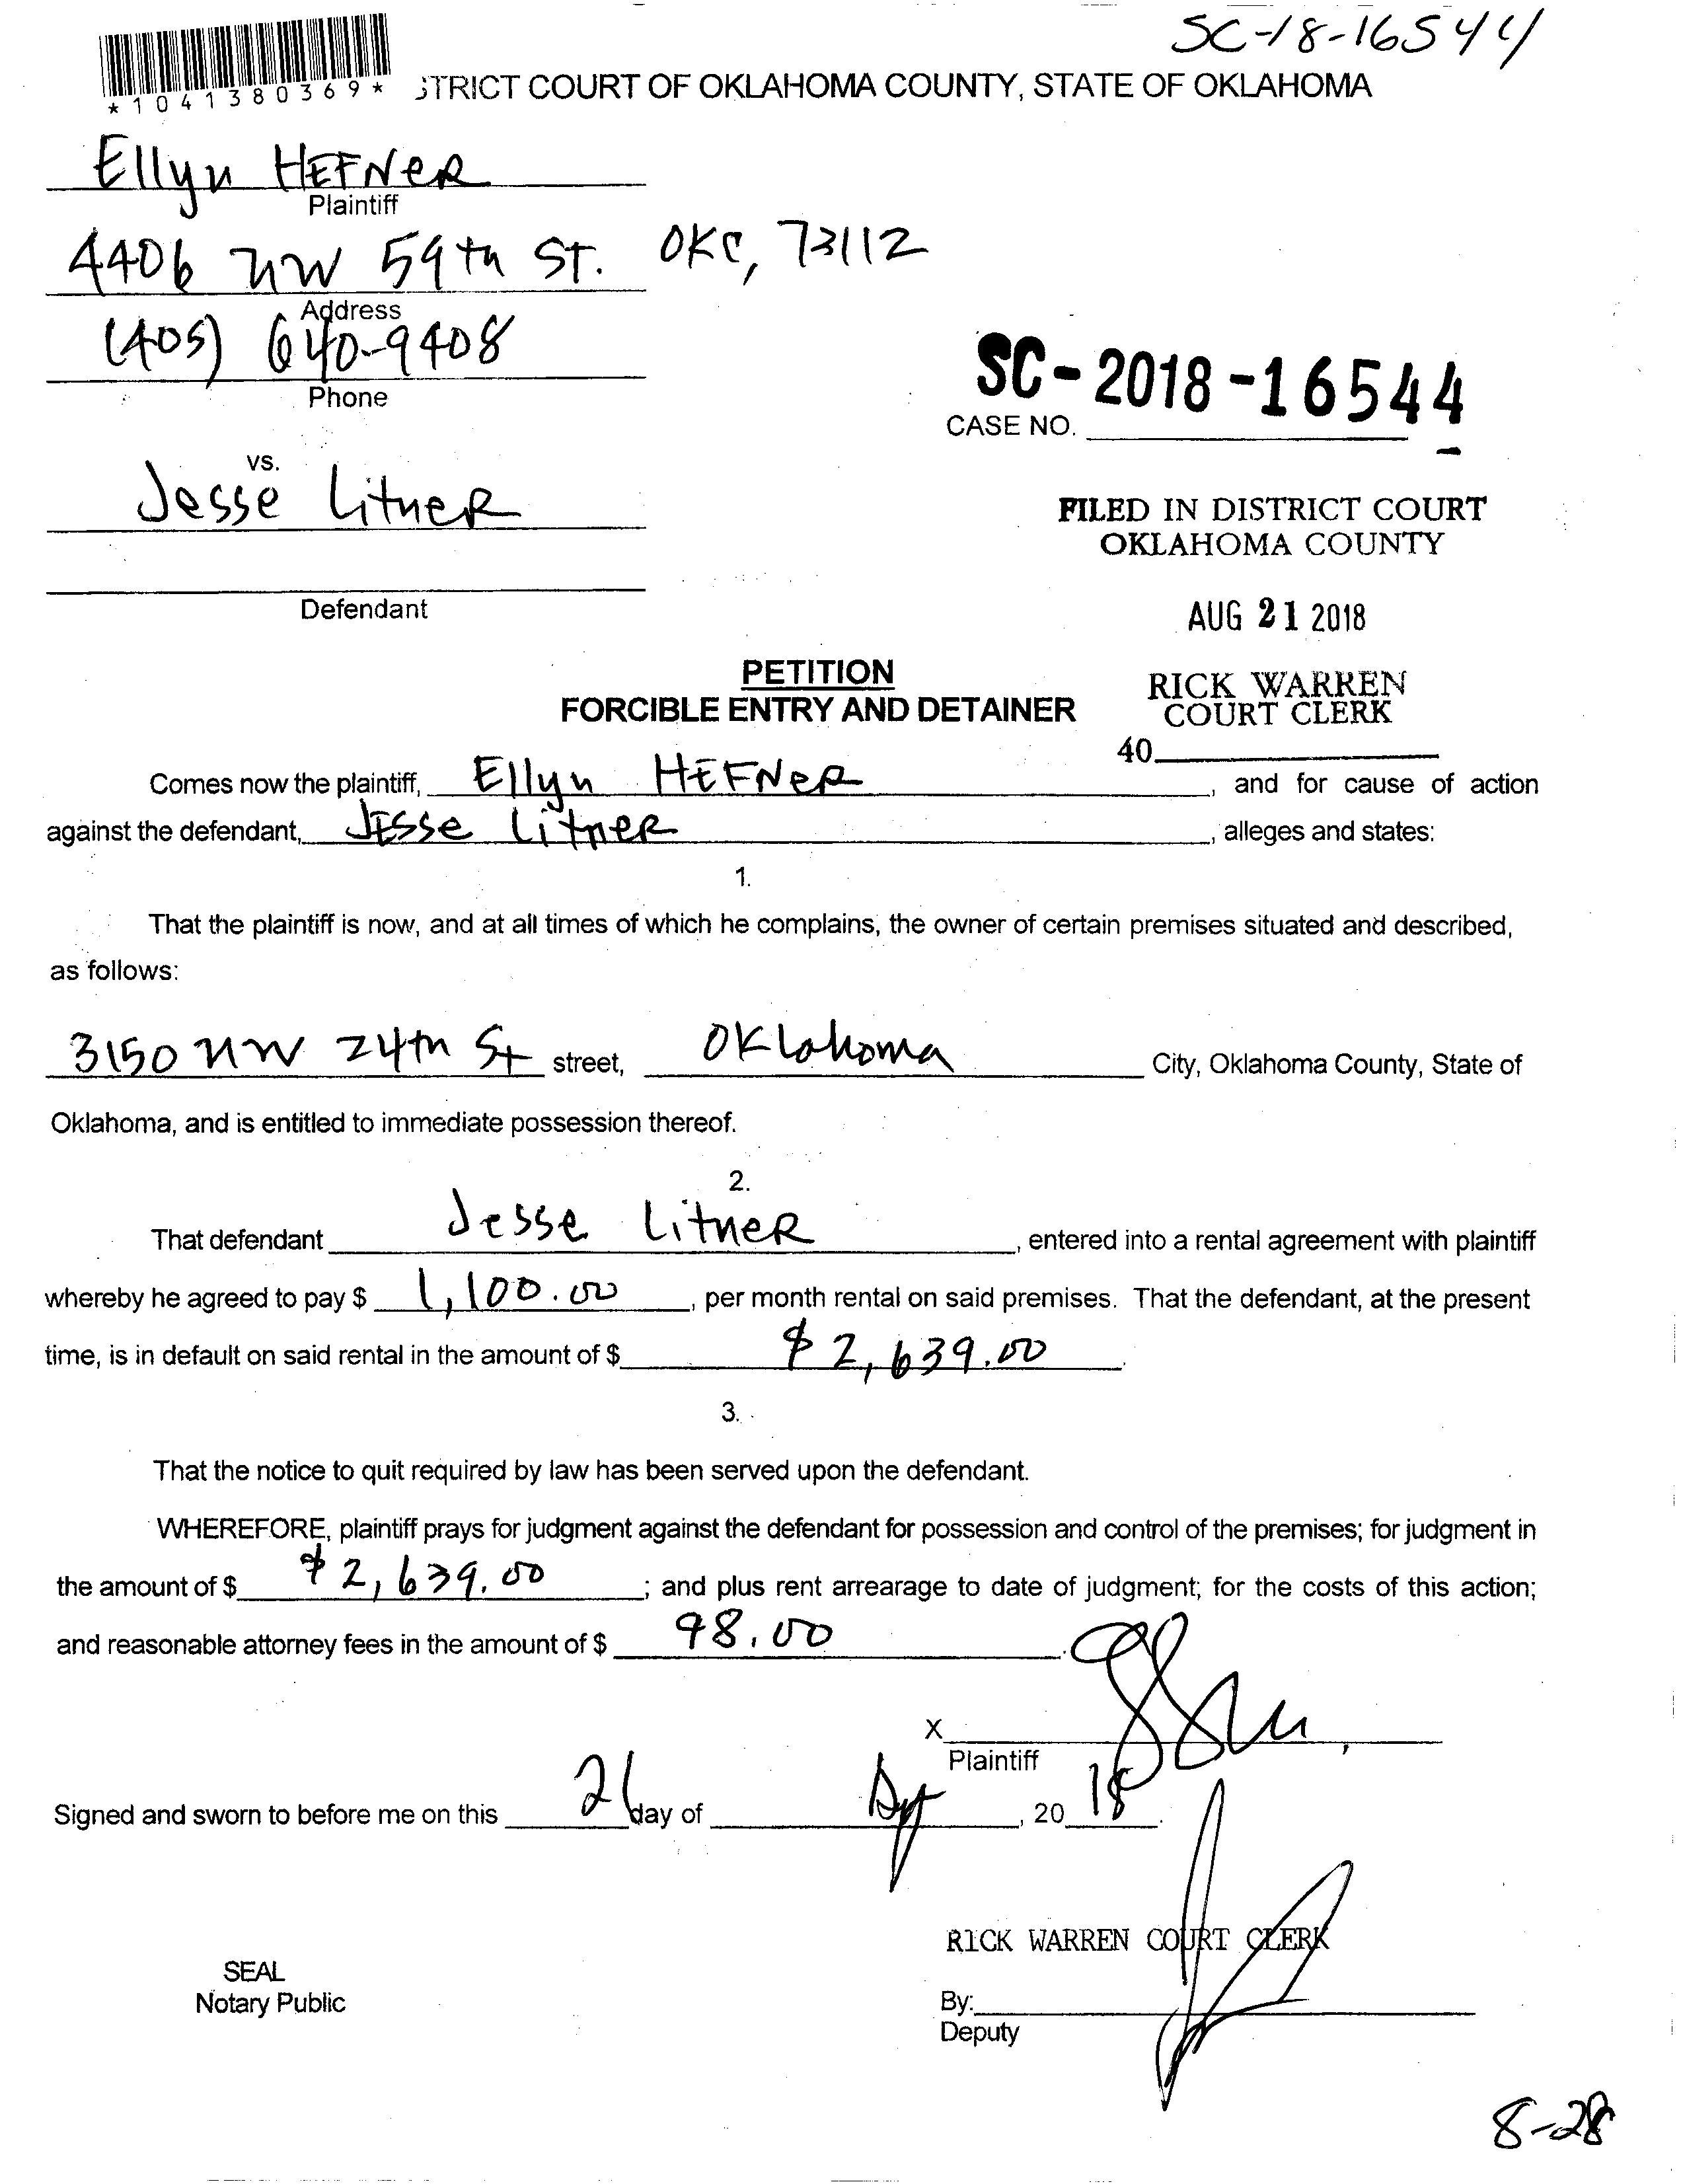 SC-18-16544
*1041380369*
STRICT COURT OF OKLAHOMA COUNTY, STATE OF OKLAHOMA
Ellyn HEFNER
Plaintiff
4406 NW 59th St. OKC, 73112
Address
(405) 640-9408
Phone
SC-2018-16544
CASE NO.
vs.
Jesse Litner
FILED IN DISTRICT COURT
OKLAHOMA COUNTY
Defendant
AUG 21 2018
PETITION
FORCIBLE ENTRY AND DETAINER
RICK WARREN
COURT CLERK
40
Comes now the plaintiff, Ellyn HEFNER, and for cause of action
against the defendant, Jesse Litner, alleges and states:
1.
That the plaintiff is now, and at all times of which he complains, the owner of certain premises situated and described,
as follows:
3150 NW 24th St street, Oklahoma City, Oklahoma County, State of
Oklahoma, and is entitled to immediate possession thereof.
2.
That defendant Jesse Litner, entered into a rental agreement with plaintiff
whereby he agreed to pay $ 1,100.00, per month rental on said premises. That the defendant, at the present
time, is in default on said rental in the amount of $ $2,639.00.
3.
That the notice to quit required by law has been served upon the defendant.
WHEREFORE, plaintiff prays for judgment against the defendant for possession and control of the premises; for judgment in
the amount of $ $2,639.00; and plus rent arrearage to date of judgment; for the costs of this action;
and reasonable attorney fees in the amount of $ 98.00.
X
Plaintiff
Signed and sworn to before me on this 21 day of , 20 18.
RICK WARREN COURT CLERK
SEAL
Notary Public
By:
Deputy
8-28